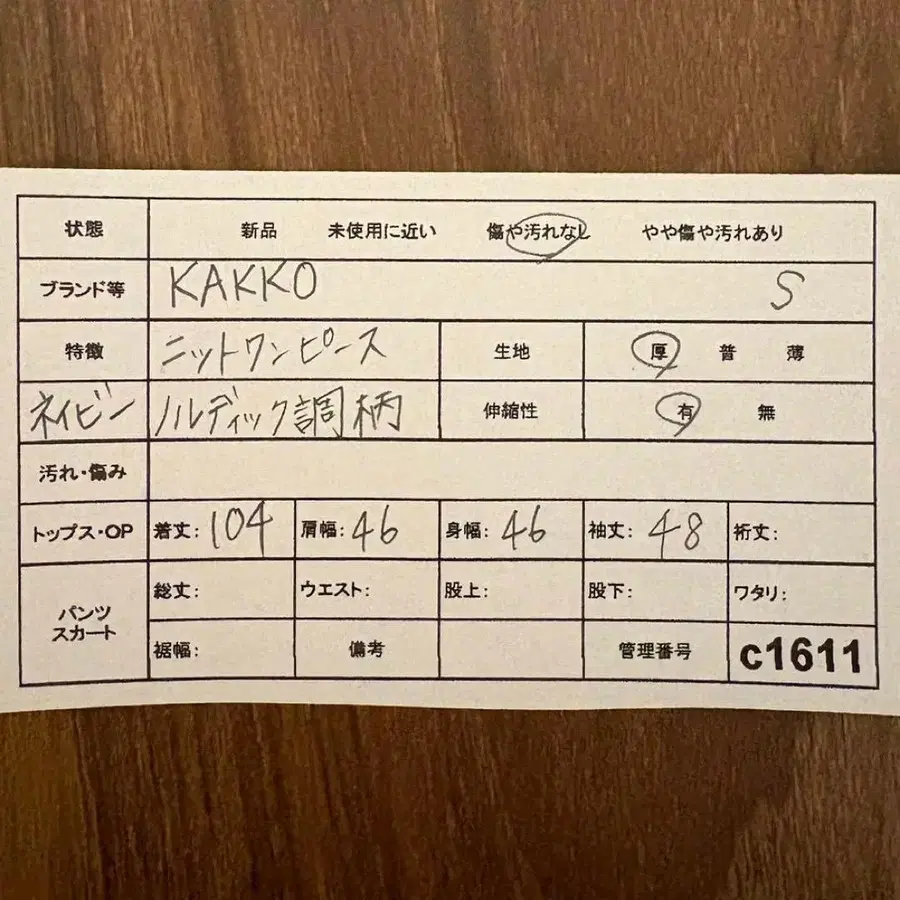 状態 新品 未使用に近い 傷や汚れなし やや傷や汚れあり
ブランド等 KAKKO S
特徴 ニットワンピース 生地 厚 普 薄
ネイビー ノルディック調柄 伸縮性 有 無
汚れ・傷み
トップス・OP 着丈: 104 肩幅: 46 身幅: 46 袖丈: 48 裄丈:
パンツ スカート 総丈: ウエスト: 股上: 股下: ワタリ:
裾幅: 備考 管理番号 c1611